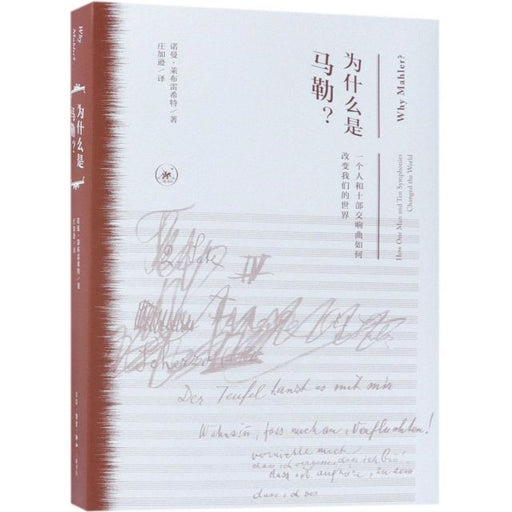 Why Mahler?
为什么是马勒？
诺曼·莱布雷希特/著
庄加逊/译
诺曼·莱布雷希特/著
庄加逊/译
为什么是
马勒？
Why Mahler?
一个人和十部交响曲如何
改变我们的世界
How One Man and Ten Symphonies
Changed the World
IV
Scherzo
Der Teufel tanzt es mit mir
Wahnsinn, fass mich an, Verfluchten!
vernichte mich
dass ich vergesse, dass ich bin!
dass ich aufhöre, zu sein
dass ich ver